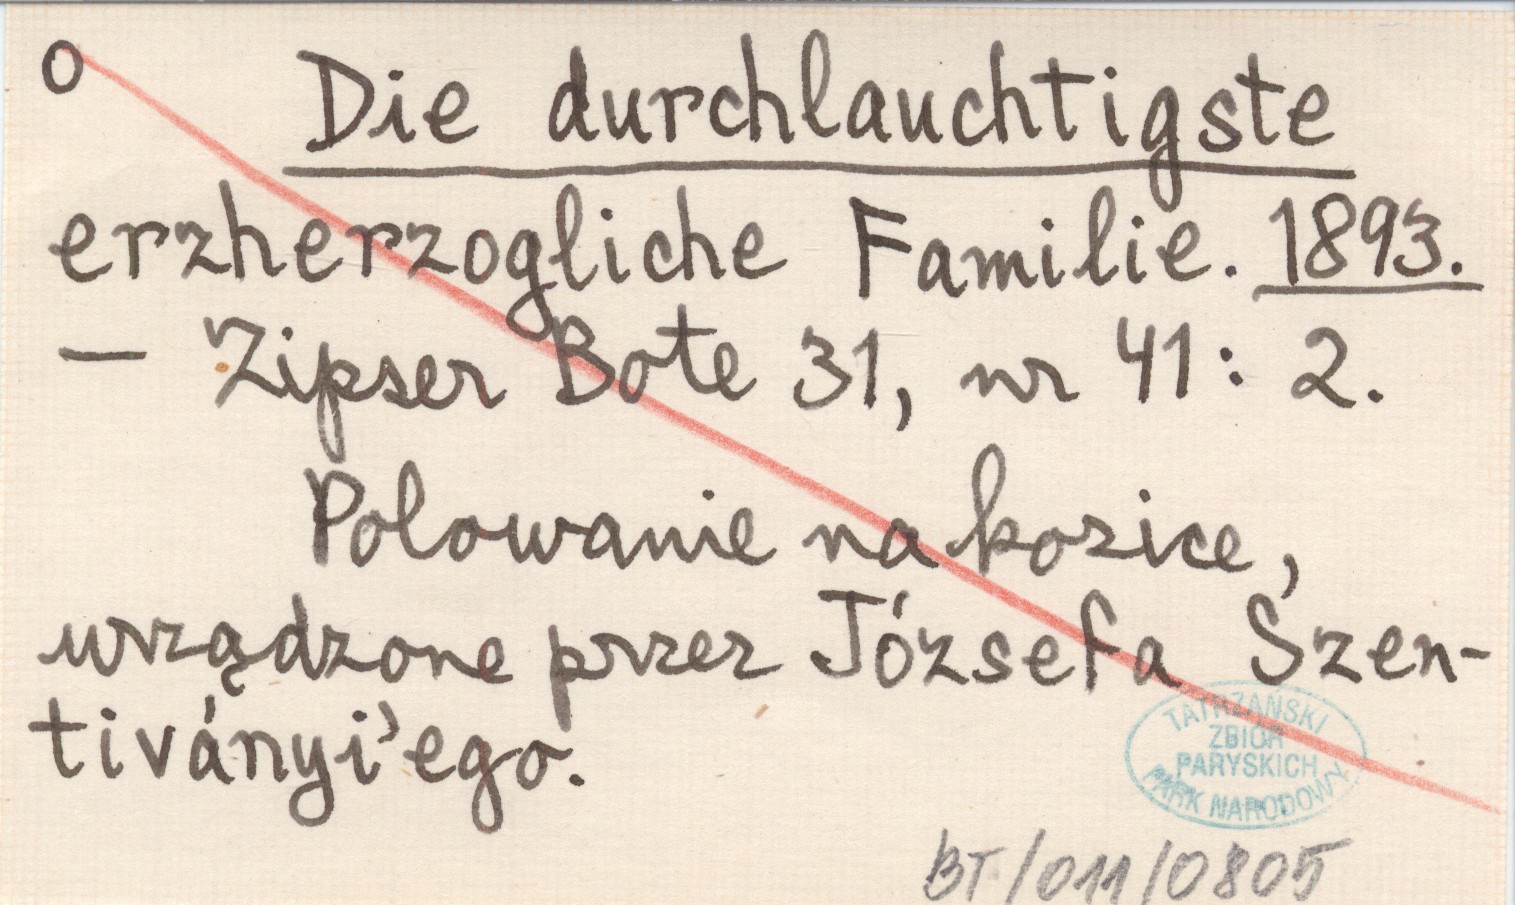 O Die durchlauchtigste
erzherzogliche Familie. 1893.
— Zipser Bote 31, nr 41: 2.
Polowanie na kozice,
urządzone przez Józsefa Szen-
tiványi'ego.
TATRZAŃSKI
ZBIÓR
PARYSKICH
PARK NARODOWY
BT/011/0805